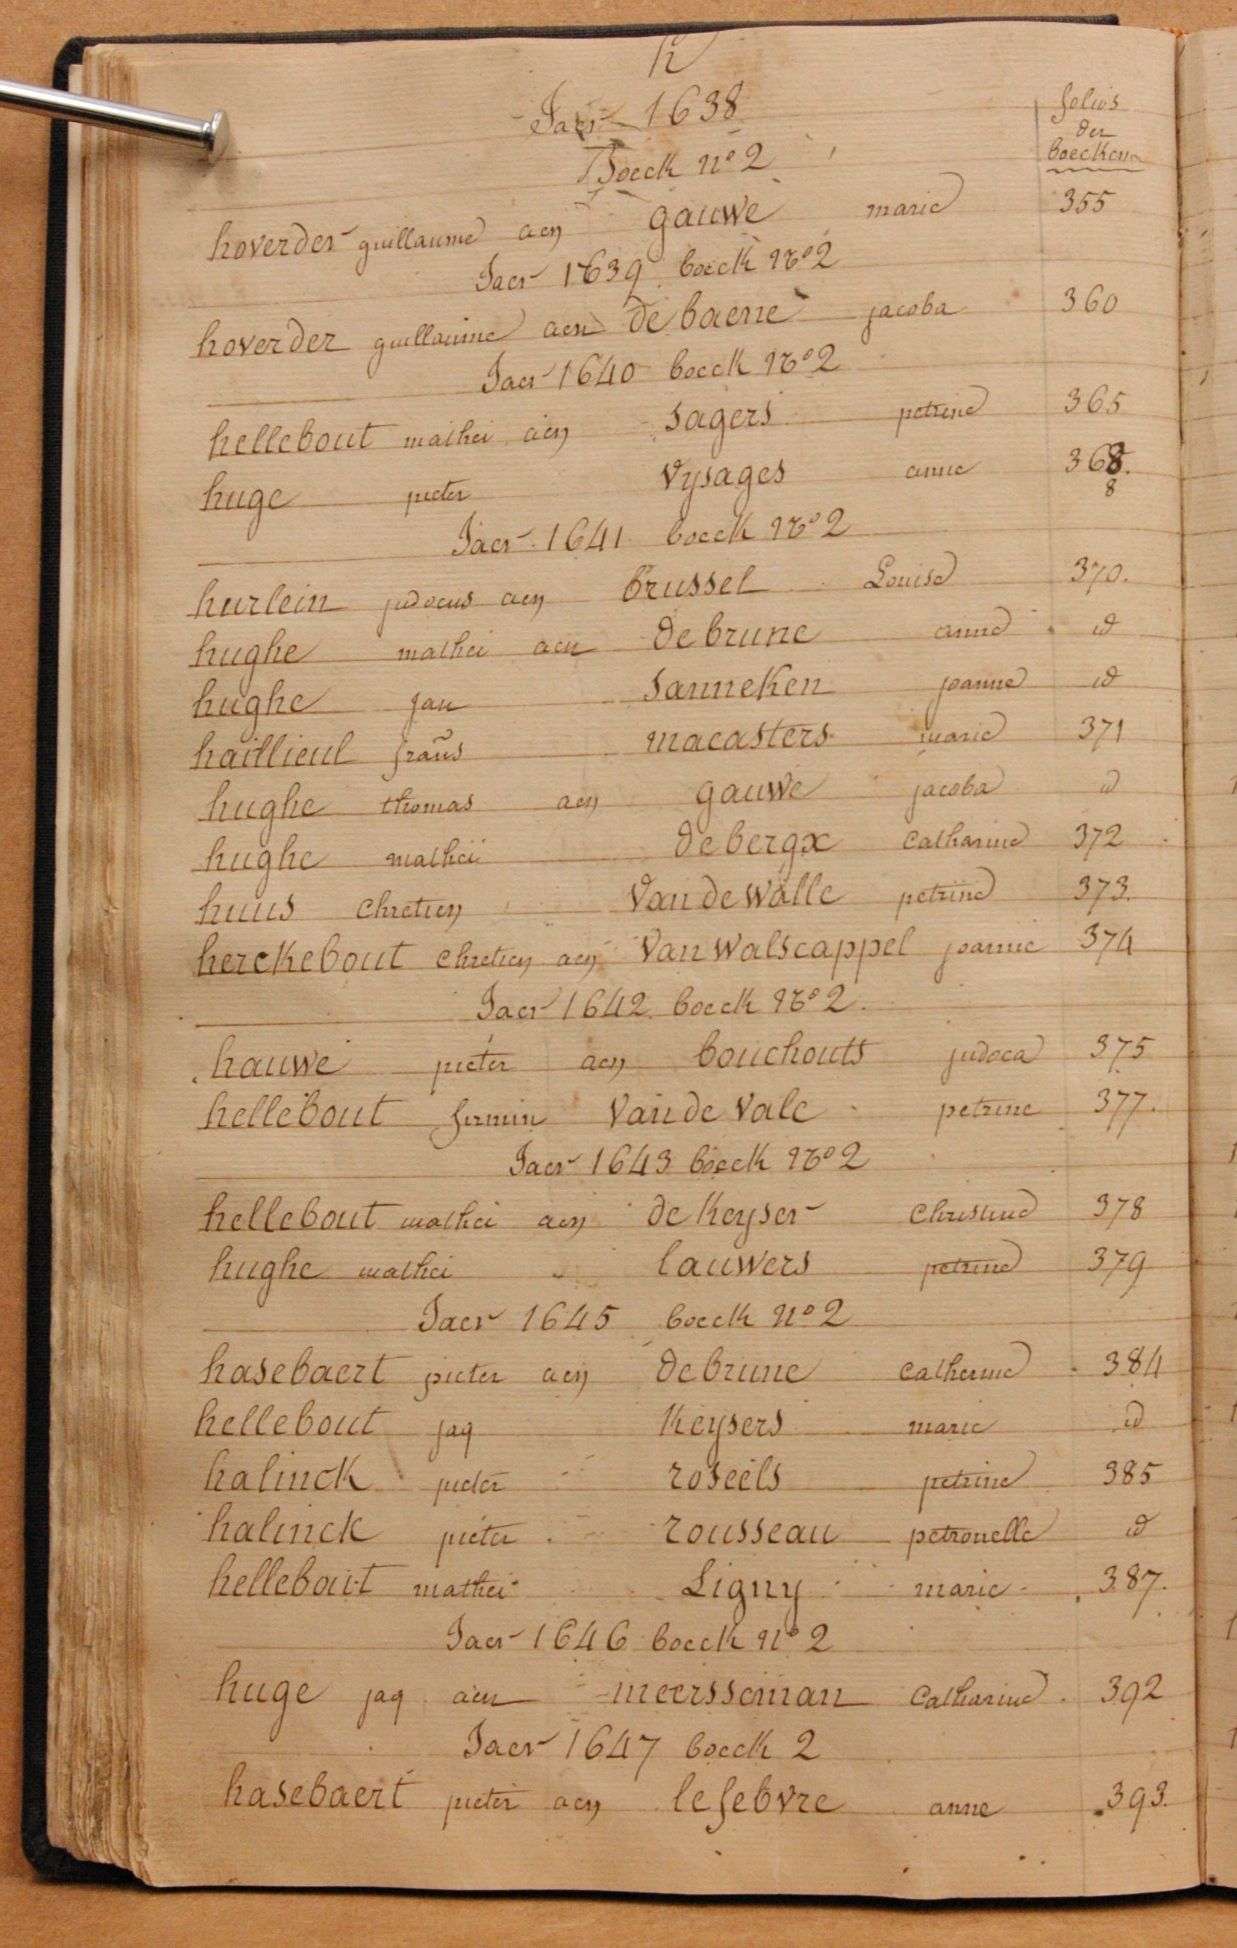 h
Jaer 1638
Boeck n° 2
folios
der
boecken
hoverder guillaume aen gauwe marie 355
Jaer 1639 boeck N° 2
hoverder guillaume aen de baene jacoba 360
Jaer 1640 boeck N° 2
hellebout mathei aen sagers petrine 365
huge pieter vysages anne 368.
8
Jaer 1641 boeck N° 2
hurlein judocus aen brussel Louise 370.
hughe mathei aen de brune anne id
hughe jan sanneken joanne id
haillieul frañs macasters marie 371
hughe thomas aen gauwe jacoba id
hughe mathei de bergx catharine 372
huus chretien van de walle petrine 373.
herckebout chretien aen van walscappel joanne 374
Jaer 1642 boeck N° 2.
hauwe pieter aen bouchoutt judoca 375
hellebout firmin van de vale petrine 377.
Jaer 1643 boeck N° 2
hellebout mathei aen de Keyser christine 378
hughe mathei lauwers petrine 379
Jaer 1645 boeck n° 2
hasebaert pieter aen de brune catherine 384
hellebout jaq Keysers marie id
halinck pieter roseels petrine 385
halinck pieter rousseau petronelle id
hellebout mathei Ligny marie 387.
Jaer 1646 boeck n° 2
huge jaq aen meersseman catharine 392
Jaer 1647 boeck 2
hasebaert pieter aen lefebvre anne 393.